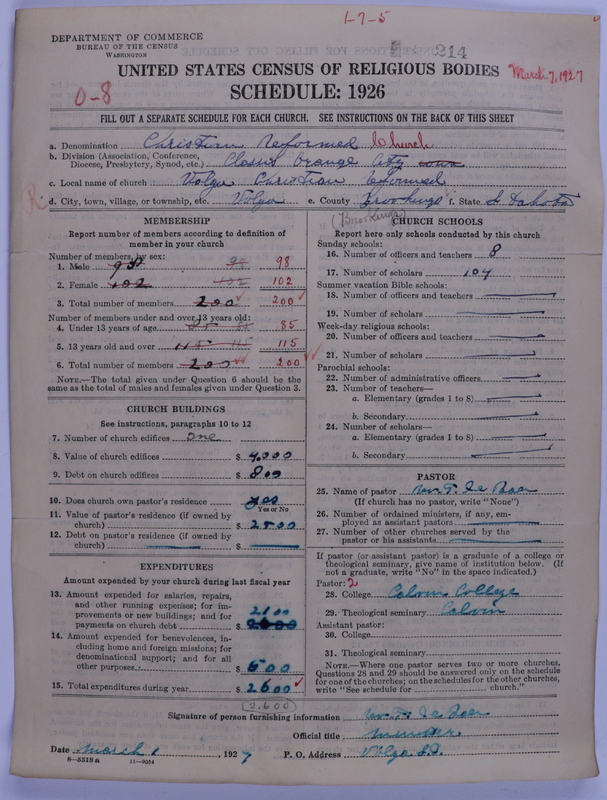 1-7-5
DEPARTMENT OF COMMERCE
BUREAU OF THE CENSUS
WASHINGTON
214
UNITED STATES CENSUS OF RELIGIOUS BODIES
March 7, 1927
0-8
SCHEDULE: 1926
FILL OUT A SEPARATE SCHEDULE FOR EACH CHURCH. SEE INSTRUCTIONS ON THE BACK OF THIS SHEET
a. Denomination Christian Reformed Church
b. Division (Association, Conference, Diocese, Presbytery, Synod, etc.) Classis Orange City Iowa
c. Local name of church Volga Christian Reformed
R
d. City, town, village, or township, etc. Volga e. County Brookings f. State S. Dakota
(Brookings)
MEMBERSHIP
Report number of members according to definition of member in your church
Number of members, by sex:
1. Male 98 98
2. Female 102 102 102
3. Total number of members 200 200
Number of members under and over 13 years old:
4. Under 13 years of age 85 85
5. 13 years old and over 115 115 115
6. Total number of members 200 200
NOTE.—The total given under Question 6 should be the same as the total of males and females given under Question 3.
CHURCH BUILDINGS
See instructions, paragraphs 10 to 12
7. Number of church edifices one
8. Value of church edifices $ 9,000
9. Debt on church edifices $ 800
10. Does church own pastor's residence yes
Yes or No
11. Value of pastor's residence (if owned by church) $ 2500
12. Debt on pastor's residence (if owned by church) $
EXPENDITURES
Amount expended by your church during last fiscal year
13. Amount expended for salaries, repairs, and other running expenses; for improvements or new buildings; and for payments on church debt $ 2100
14. Amount expended for benevolences, including home and foreign missions; for denominational support; and for all other purposes $ 500
15. Total expenditures during year $ 2600
(2,600)
CHURCH SCHOOLS
Report here only schools conducted by this church
Sunday schools:
16. Number of officers and teachers 8
17. Number of scholars 104
Summer vacation Bible schools:
18. Number of officers and teachers
19. Number of scholars
Week-day religious schools:
20. Number of officers and teachers
21. Number of scholars
Parochial schools:
22. Number of administrative officers
23. Number of teachers—
a. Elementary (grades 1 to 8)
b. Secondary
24. Number of scholars—
a. Elementary (grades 1 to 8)
b. Secondary
PASTOR
25. Name of pastor Wm. F. De Boer
(If church has no pastor, write "None")
26. Number of ordained ministers, if any, employed as assistant pastors
27. Number of other churches served by the pastor or his assistants
If pastor (or assistant pastor) is a graduate of a college or theological seminary, give name of institution below. (If not a graduate, write "No" in the space indicated.)
Pastor: 2
28. College Calvin College
29. Theological seminary Calvin
Assistant pastor:
30. College
31. Theological seminary
NOTE.—Where one pastor serves two or more churches, Questions 28 and 29 should be answered only on the schedule for one of the churches; on the schedules for the other churches, write "See schedule for church."
Signature of person furnishing information Wm. F. De Boer
Official title Minister
Date March 1, 1927 P. O. Address Volga S.D.
8—5518a 11—9054